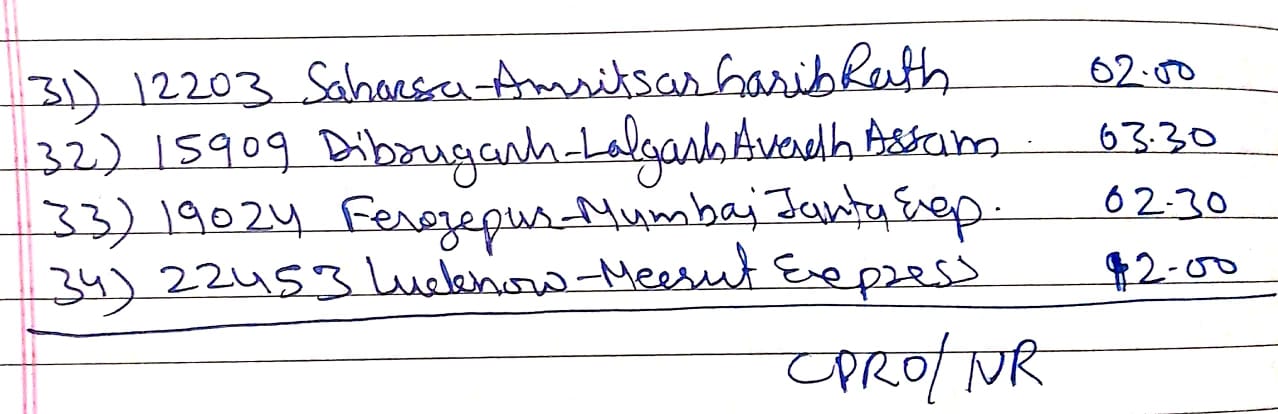 31) 12203 Saharsa-Amritsar Garib Rath 02.00
32) 15909 Dibrugarh-Lalgarh Avadh Assam 03.30
33) 19024 Ferozepur-Mumbai Janta Exp. 02-30
34) 22453 Lucknow-Meerut Express 2-00
CPRO/NR